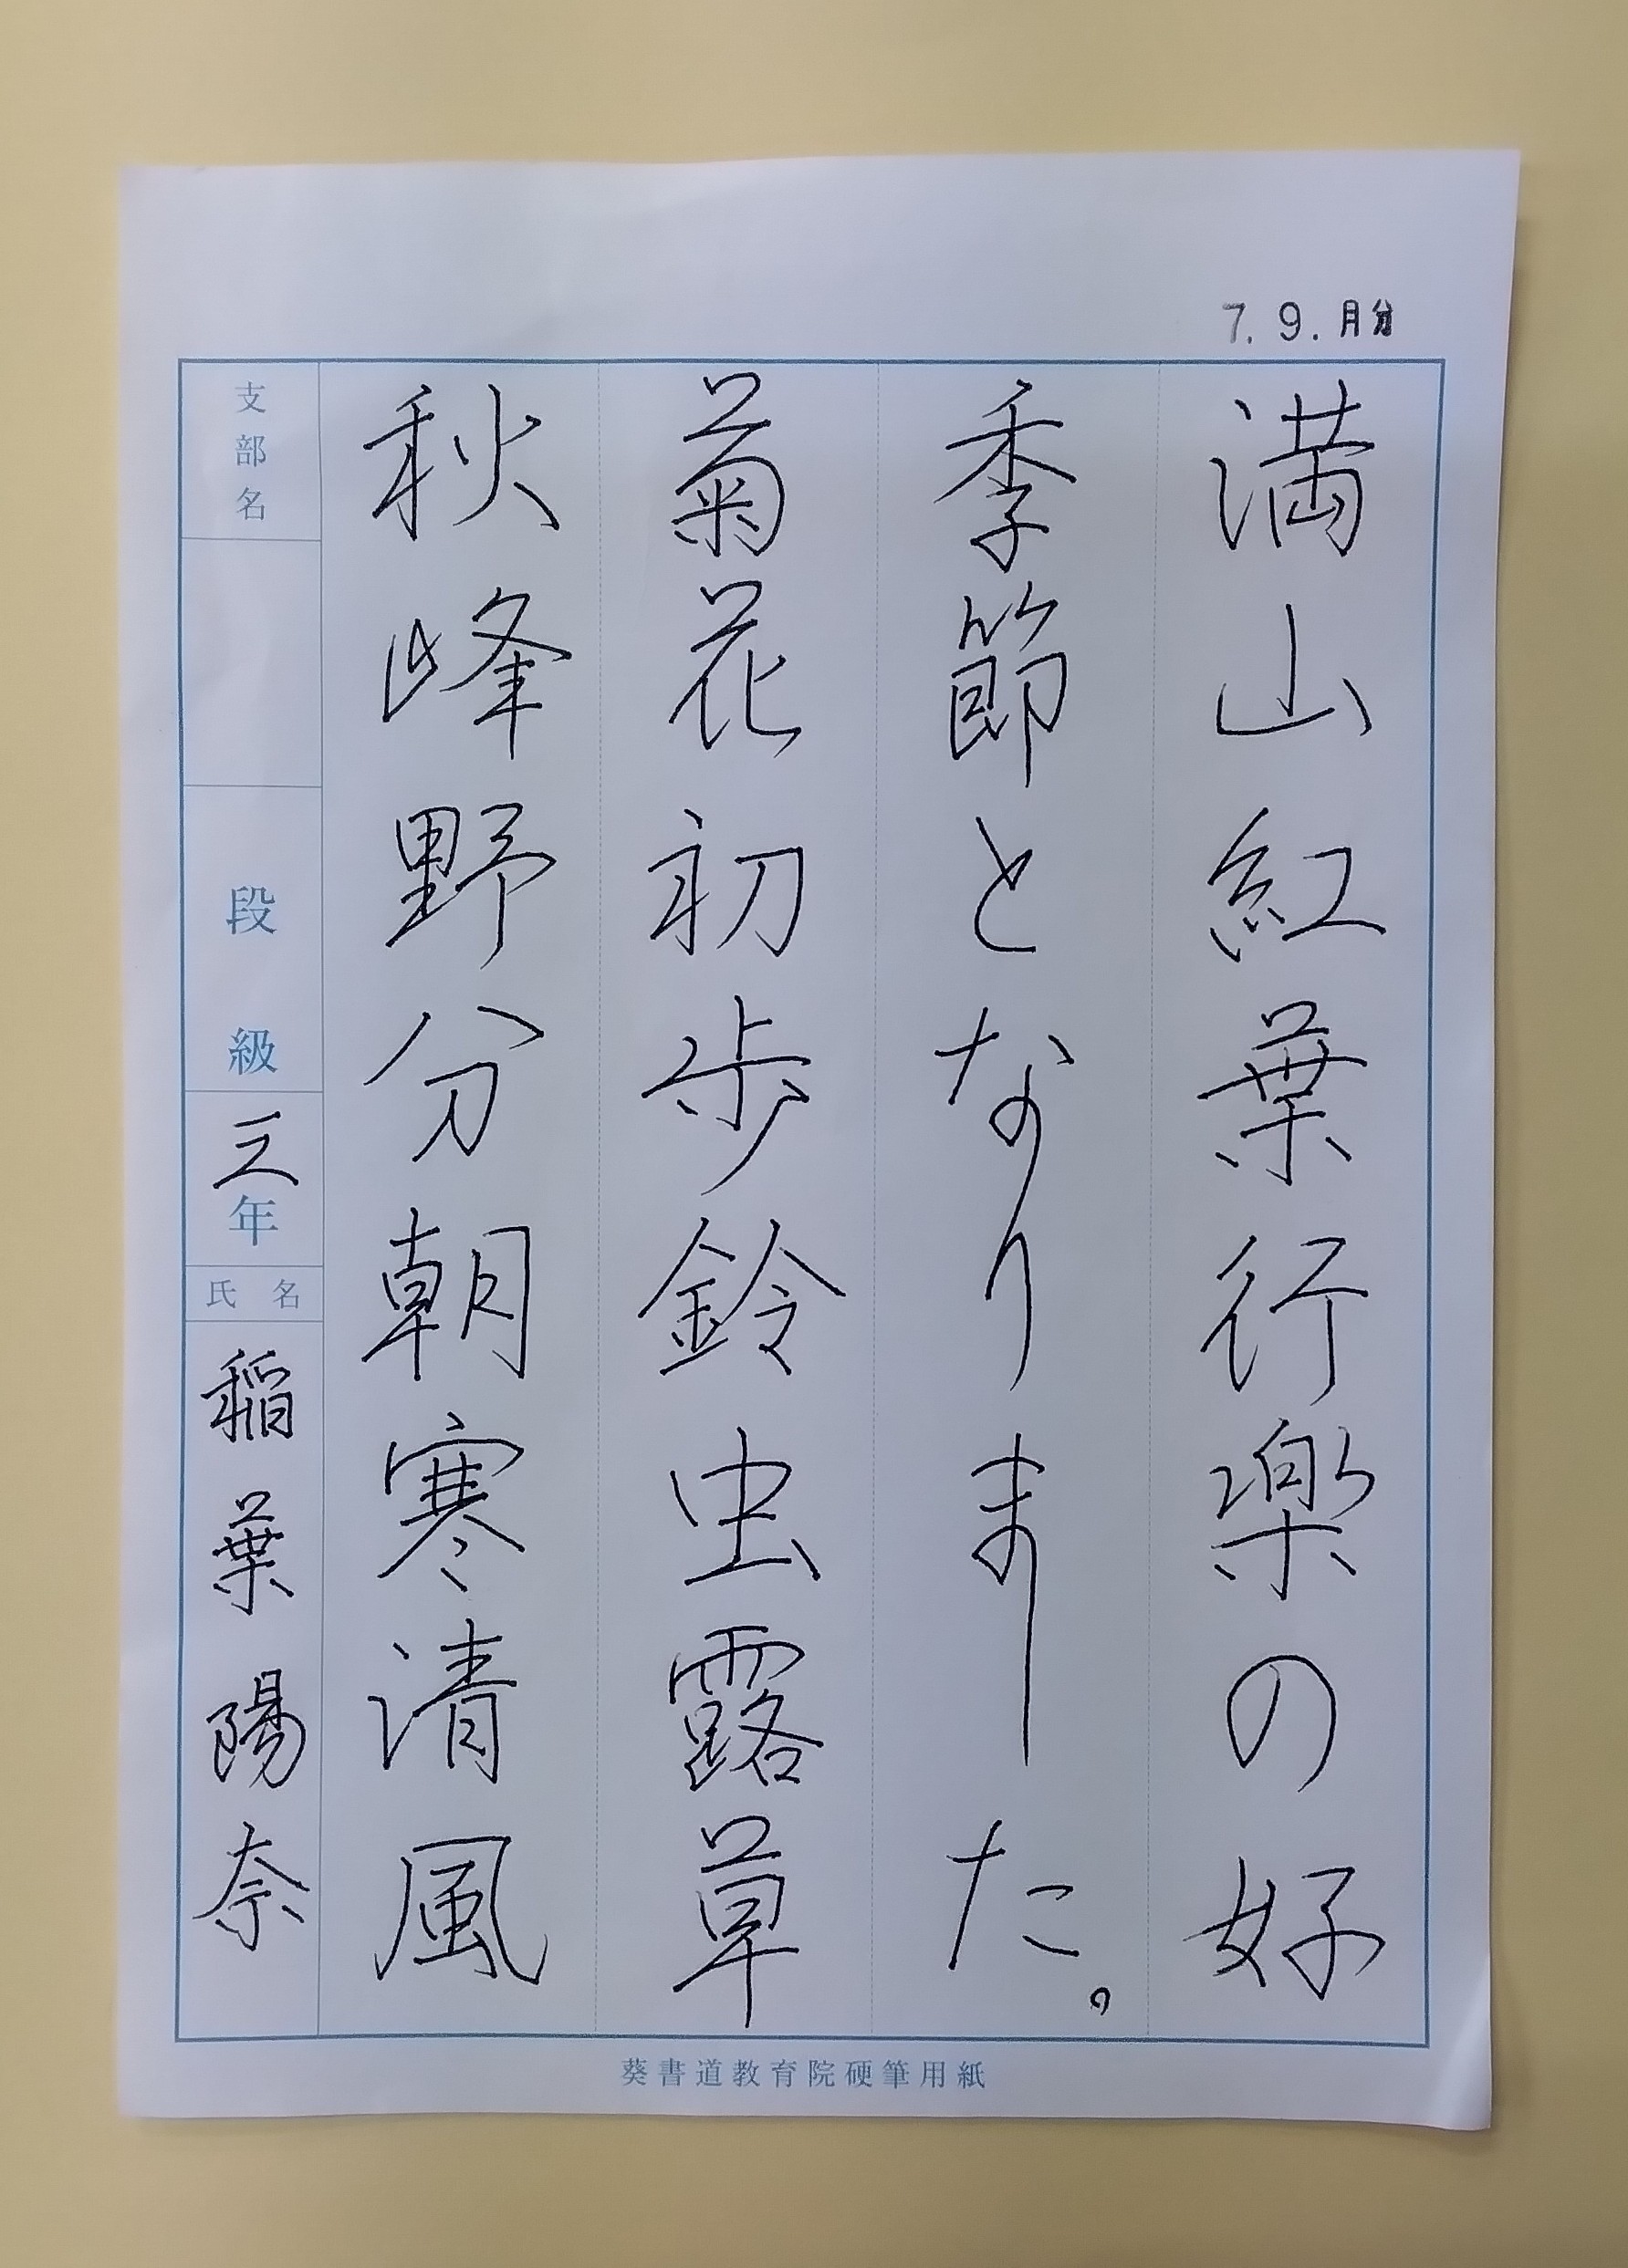 7.9.月分
満山紅葉行楽の好
季節となりました。
菊花初歩鈴虫露草
秋峰野分朝寒清風
支部名
段級
三年
氏名
稲葉陽奈
葵書道教育院硬筆用紙